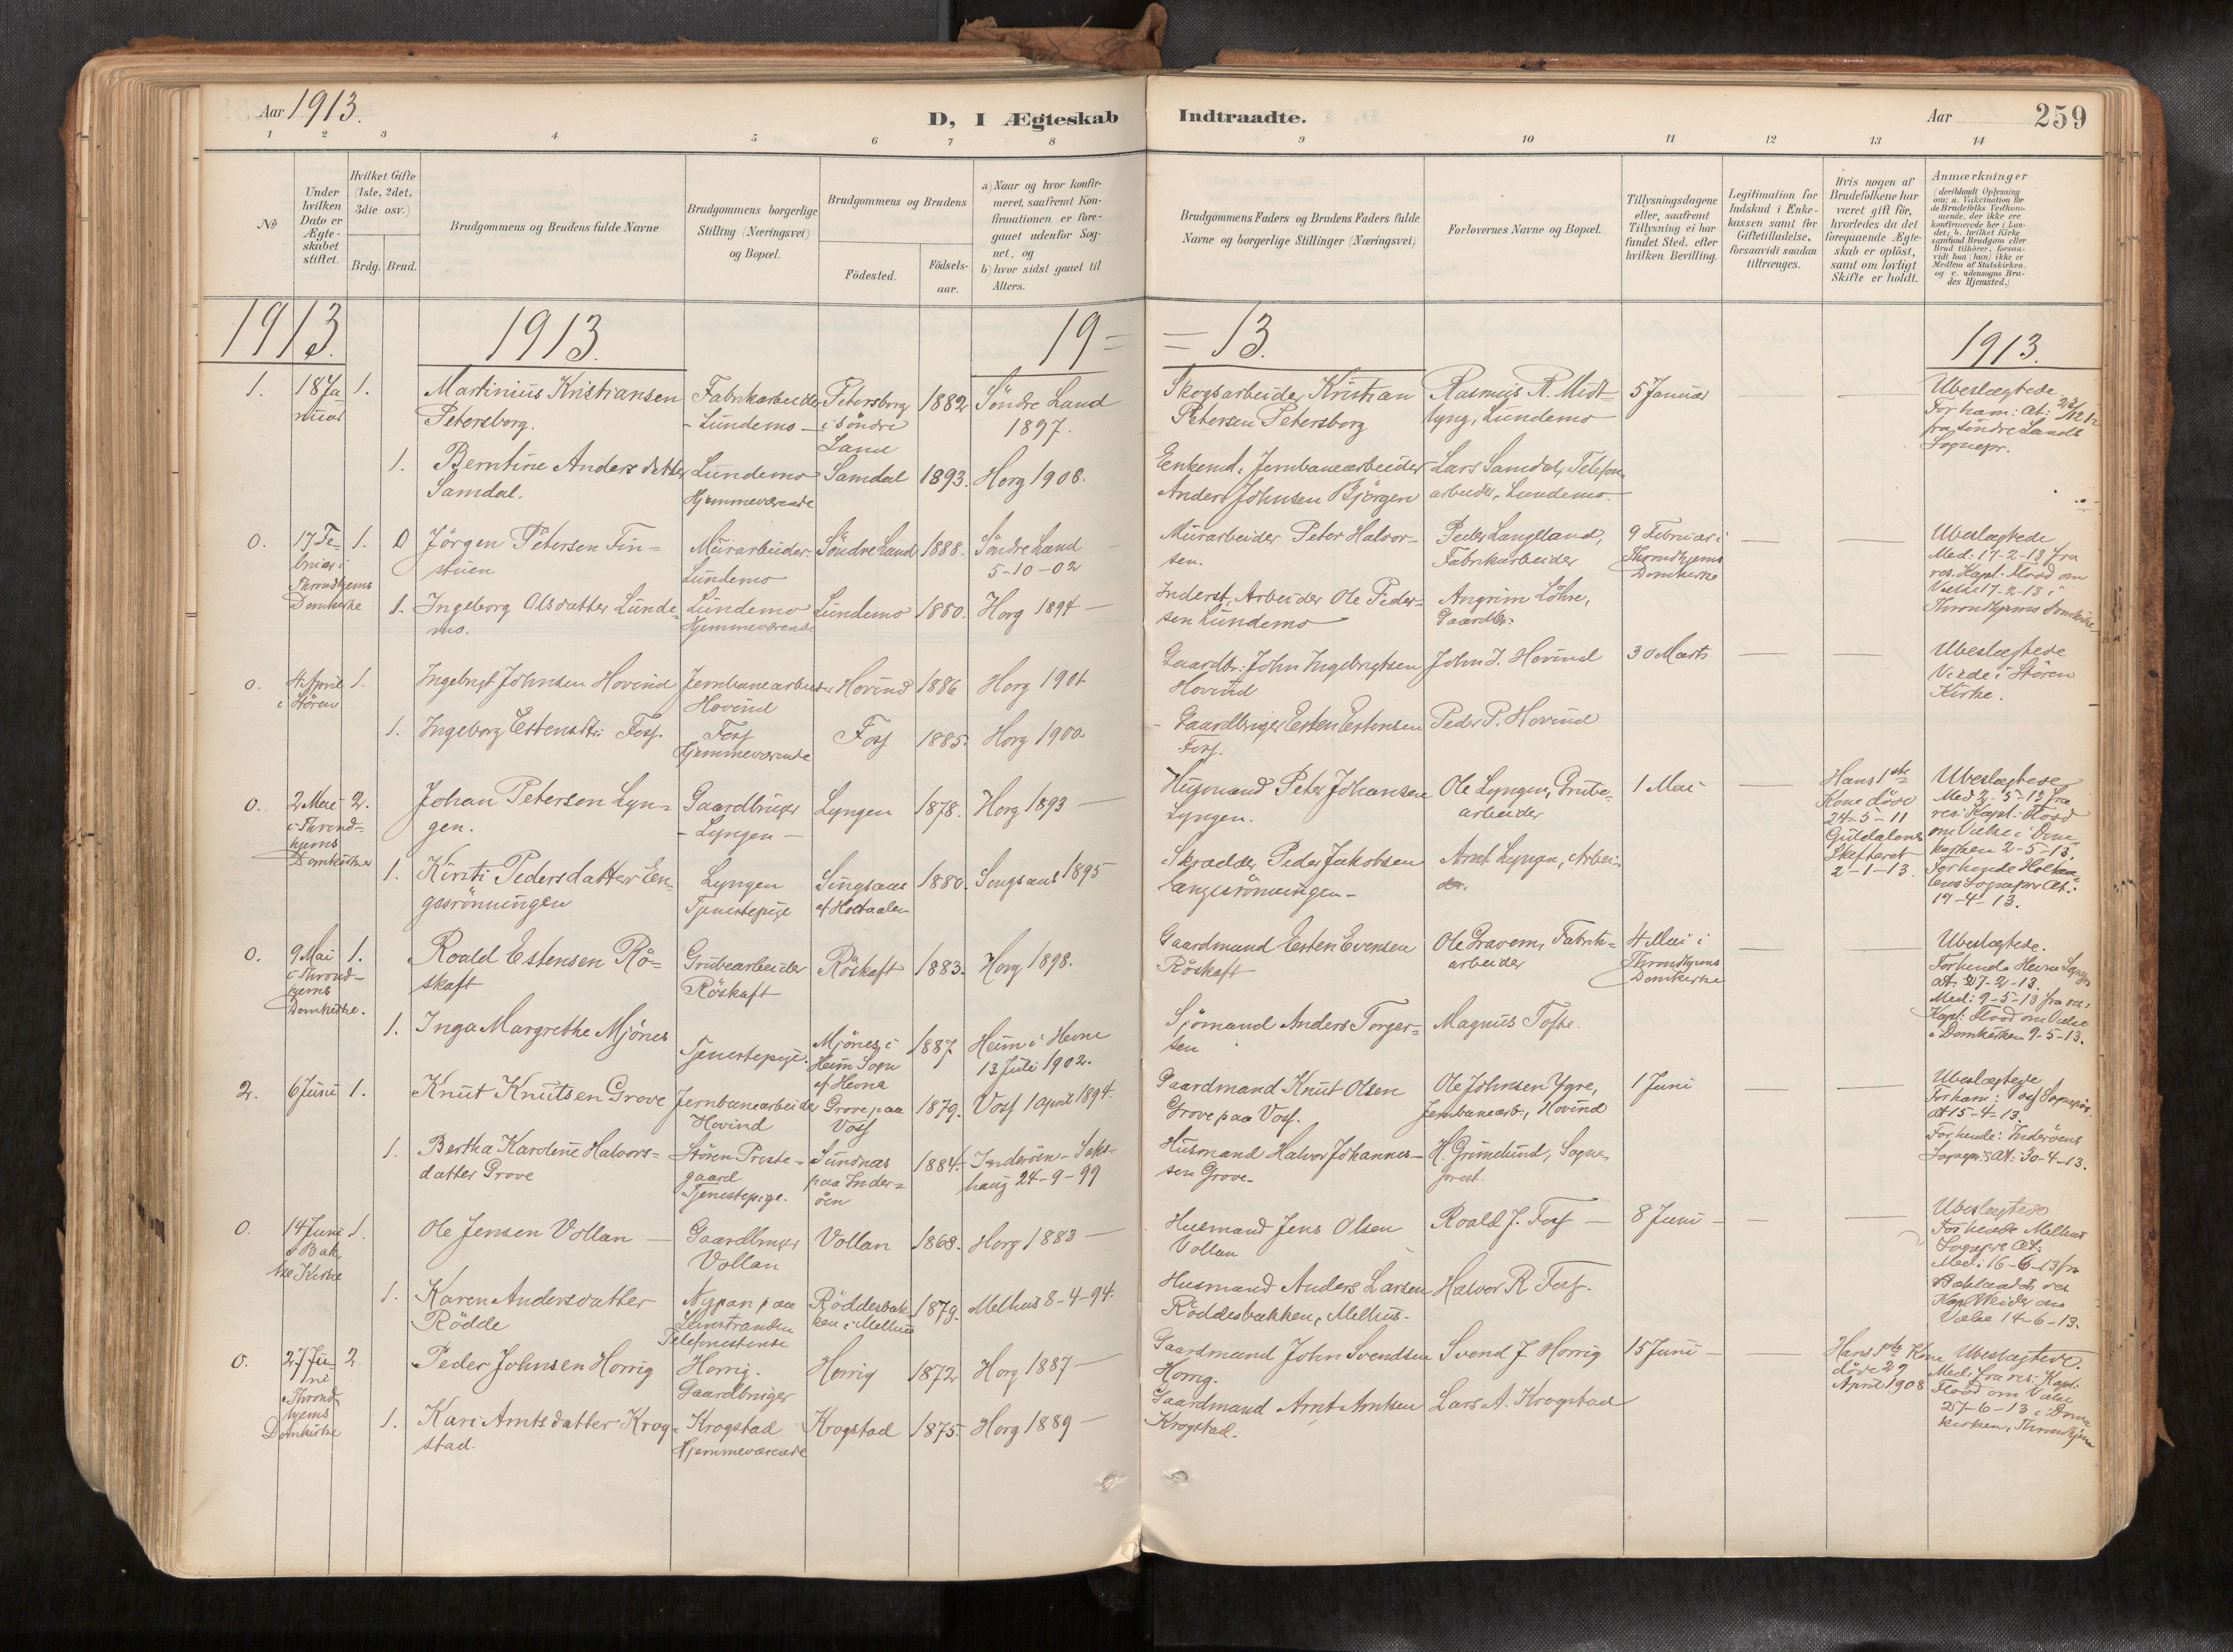 Aar 1913.
D, I Ægteskab
Indtraadte.
Aar
259
1 2 3 4 5 6 7 8 9 10 11 12 13 14
No
Under hvilken Dato er Ægteskabet stiftet.
Hvilket Gifte (1ste, 2det, 3die osv.)
Brdg. Brud.
Brudgommens og Brudens fulde Navne
Brudgommens borgerlige Stilling (Næringsvei) og Bopæl.
Brudgommens og Brudens
Födested.
Födsels-aar.
a) Naar og hvor konfir-
meret, saafremt Kon-
firmationen er fore-
gaaet udenfor Sog-
net, og
b) hvor sidst gaaet til
Alters.
Brudgommens Faders og Brudens Faders fulde
Navne og borgerlige Stillinger (Næringsvei)
Forlovernes Navne og Bopæl.
Tillysningsdagene
eller, saafremt
Tillysning ei har
fundet Sted, efter
hvilken Bevilling.
Legitimation for
Indskud i Enke-
kassen samt for
Giftetilladelse,
forsaavidt saadan
tiltrænges.
Hvis nogen af
Brudefolkene har
været gift för,
hvorledes da det
foregaaende Ægte-
skab er oplöst,
samt om lovligt
Skifte er holdt.
Anmærkninger
(deriblandt Oplysning
om: a. Vakcination for
de Brudefolks Vedkom-
mende, der ikke ere
konfirmerede her i Lan-
det; b. hvilket Kirke
samfund Brudgom eller
Brud tilhörer, forsaa-
vidt han (hun) ikke er
Medlem af Statskirken,
og c. udensogns Bru-
des Hjemsted.)
1913. 1913. 19= =13. 1913.
1. 18 Ja
nuar
1.
Martinius Kristiansen
Petersborg.
Fabrikarbeider
- Lundemo -
Petersborg
i Söndre
Land
1882
Söndre Land
1897.
Skogsarbeider Kristian
Petersen Petersborg
Rasmus R. Midt-
lyng, Lundemo
5 Januar
Ubeslægtede
For ham: At:
fra Söndre Lands
Sognepr.
1. Berntine Andersdatter
Samdal.
Lundemo
Hjemmeværende
Samdal
1893.
Horg 1908.
Enkemd. Jernbanearbeider
Anders Johnsen Björgen
Lars Samdal, Telefon
arbeider, Lundemo.
0. 17 Fe-
bruar i
Throndhjems
Domkirke
1.
D
Jörgen Petersen Fin-
stuen
Murarbeider.
Lundemo
Söndre Land
1888.
Söndre Land
5-10-02
Murarbeider Peter Halvor-
sen.
Peder Langeland,
Fabrikarbeider
9 Februar i
Throndhjems
Domkirke
Ubeslægtede
Med: 17-2-13 fra
res. Kapl. Flood om
Vielse 17-2-13 i
Throndhjems Domkirke
1. Ingeborg Olsdatter Lunde-
mo.
Lundemo
Hjemmeværende
Lundemo
1880.
Horg 1894
Inderst, Arbeider Ole Peder-
sen Lundemo
Angrim Löhre,
Gaardbr:
0. 4 April
i Stören
1.
Ingebrigt Johnsen Hovind
Jernbanearbeider
Hovind
Hovind
1886
Horg 1901
Gaardbr: John Ingebrigtsen
Hovind
John J. Hovind
30 Marts
Ubeslægtede
Viede i Stören
Kirke.
1. Ingeborg Estensdtr: Foss.
Foss
Hjemmeværende
Foss
1885.
Horg 1900.
Gaardbruger Esten Estensen
Foss.
Peder P. Hovind
0. 2 Mai
i Thrond-
hjems
Domkirke
2.
Johan Petersen Lyn-
gen.
Gaardbruger
- Lyngen -
Lyngen
1878.
Horg 1893
Husmand Peter Johansen
Lyngen.
Ole Lyngen, Grube-
arbeider
1 Mai
Hans 1ste
Kone döde
24-5-11
Guldalens
Skifteret
2-1-13.
Ubeslægtede
Med 2-5-13 fra
res: Kapl: Flood
om Vielse i Dom
kirken 2-5-13.
For hende Holtaa-
lens Sognepr At:
19-4-13.
1. Kirsti Pedersdatter En-
gsrönningen
Lyngen
Tjenestepige
Singsaas
af Holtaalen
1880.
Singsaas 1895
Skrædder Peder Jakobsen
Engesrönningen
Arnt Lyngen, Arbei-
der.
0. 9 Mai
i Thrond-
hjems
Domkirke.
1.
Roald Estensen Rö-
skaft
Grubearbeider
Röskaft
Röskaft
1883.
Horg 1898.
Gaardmand Esten Evensen
Röskaft
Ole Gravem, Fabrik-
arbeider
4 Mai i
Throndhjems
Domkirke
Ubeslægtede.
For hende Hevne Sognepr
At. 27-2-13.
Med: 9-5-13 fra res:
Kapl: Flood om Vielse
i Domkirken 9-5-13.
1. Inga Margrethe Mjönes
Tjenestepige.
Mjönes i
Heim Sogn
af Hevne
1887
Heim i Hevne
13 Juli 1902.
Sjömand Anders Torger-
sen
Magnus Tofte.
2. 6 Juni 1.
Knut Knutsen Grove
Jernbanearbeider
Hovind
Grove paa
Voss
1879.
Voss 1 april 1894.
Gaardmand Knut Olsen
Grove paa Voss.
Ole Johnsen Ygre,
Jernbanearb:, Hovind
1 Juni
Ubeslægtede
For ham: Voss Sognepr:
At 15-4-13.
For hende: Inderöens
Sognepr: At: 30-4-13.
1. Bertha Karoline Halvors-
datter Grove
Stören Preste-
gaard
Tjenestepige.
Sundnæs
paa Inder-
öen
1884.
Inderöen - Saks-
haug 24-9-99
Husmand Halvor Johannes-
sen Grove.
H. Grimelund, Sogne-
prest.
0. 14 Juni
i Bak
ke Kirke
1.
Ole Jensen Vollan
Gaardbruger
Vollan
Vollan
1868.
Horg 1883
Husmand Jens Olsen
Vollan
Roald J. Foss
8 Juni
Ubeslægtede
For hende Melhus
Sognepr: At:
Med: 16-6-13 fra
res
Kapl:
Vielse 14-6-13.
1. Karen Andersdatter
Rödde
Nypan paa
Telefonistinde
Röddesbak
ken i Melhus
1879.
Melhus 8-4-94.
Husmand Anders Larsen
Röddesbakken, Melhus.
Halvor R Foss.
0. 27 Ju-
ni
i Thrond
hjems
Domkirke
2
Peder Johnsen Horrig
Horrig.
Gaardbruger
Horrig
1872
Horg 1887
Gaardmand John Svendsen
Horrig.
Svend J. Horrig
15 Juni
Hans 1ste Kone
döde 29
April 1908
Ubeslægtede.
Med: fra res: Kapl:
Flood om Vielse
27-6-13 i Dom
kirken, Throndhjem
1. Kari Arntsdatter Krog-
stad.
Krogstad
Hjemmeværende
Krogstad
1875.
Horg 1889
Gaardmand Arnt Arntsen
Krogstad.
Lars A. Krogstad